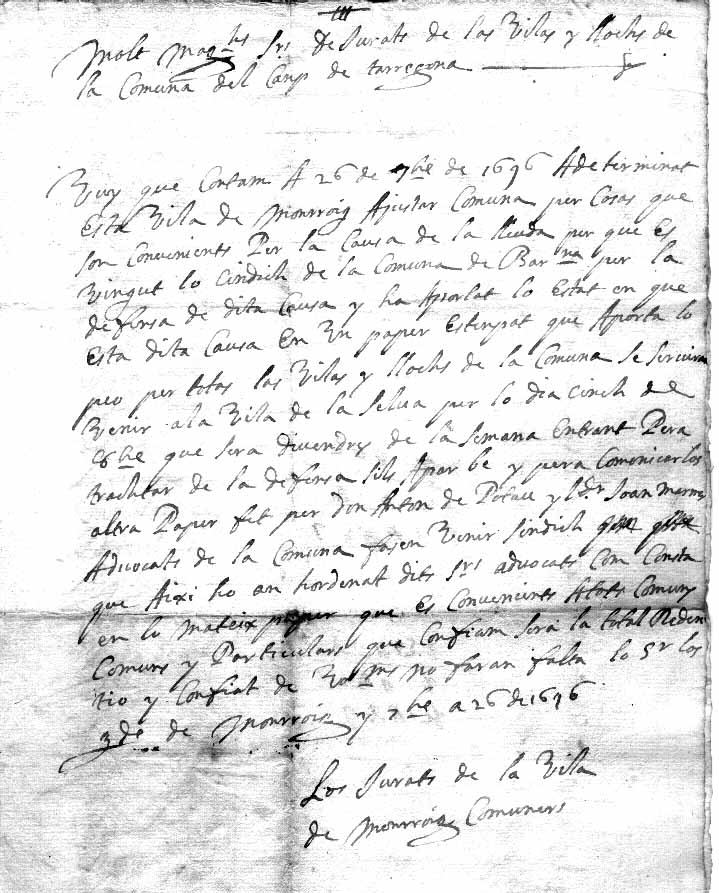 Molt Mag.hs S.rs de Jurats de las Vilas y llochs de
la Comuna del Camp de tarragona
Vuy que Contam A 26 de 7bre de 1696 Adeterminat
Esta Vila de Monrroig Ajustar Comuna per Cosas que
son Convenients Per la Causa de la lleuda per que Es
Vingut lo Cindich de la Comuna de Bar.na per la
defensa de dita Causa y ha Aportat lo Estat en que
Esta dita Causa En Un paper Estinpat que Aporta lo
peo per totas las Vilas y llochs de la Comuna se serviran
Venir ala Vila de la Selva per lo dia Cinch de
8bre que sera divendres de la Semana Entrant Pera
trachtar de la defensa sils Apar be y pera Comonicarlos
altra Paper fet per Don Anton de Potau y l.dr Joan
Advocats de la Comuna fasen Venir sindich
que Aixi ho an hordenat dits S.rs advocats Com Consta
en lo mateix paper que Es Convenients Atots Comuns
Comuns y Particulars que Confiam sera la total Reden
tio y Confiat de no faran falta lo S.r los
g.de de Monrroig y 7bre a 26 de 1696
Los Jurats de la Vila
de Monrroig Comuners